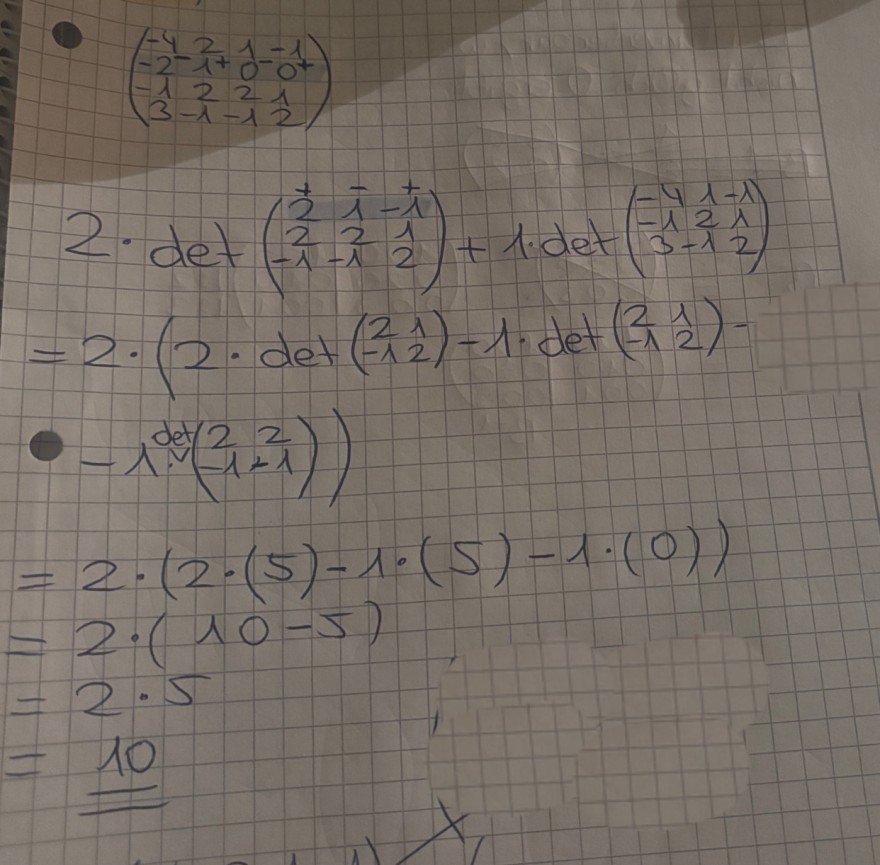 (-4 2 1 -1
-2 - 1 + 0 - 0 +
-1 2 2 1
3 -1 -1 2)
+ - +
2 · det (2 1 -1 + 1 · det (-4 1 -1
2 2 1 -1 2 1
-1 -1 2) 3 -1 2)
= 2 · (2 · det (2 1 -1 2) - 1 · det (2 1 -1 2) -
- 1 · det (2 2 -1 -1))
= 2 · (2 · (5) - 1 · (5) - 1 · (0))
= 2 · (10 - 5)
= 2 · 5
= 10